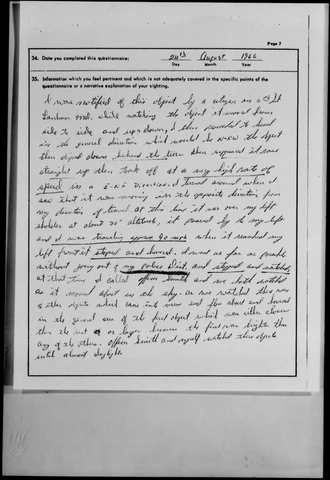 Page 7
34. Date you completed this questionnaire: 24th August 1966
Day Month Year
35. Information which you feel pertinent and which is not adequately covered in the specific points of the
questionnaire or a narrative explanation of your sighting.
I was notified of this object by a citizen on
Lanham Md. while watching the object it moved from
side to side and up & down, I then proceeded to
in the general direction which the object
then dipped down behind the trees then reappeared it rose
straight up then took off at a very high rate of
speed in a direction. I turned around when I
saw that it was moving in the opposite direction from
my direction of travel at this time it was over my left
shoulder at about 30° altitude, it passed by to my left
and I was traveling approx 90 mph when it reached my
left front it stopped and hovered. I went as far as possible
without going out of my police Dist. and stopped and watched,
at that time I called officer Smith and we both watched
as it moved about in the sky. as we watched this one
other objects which came into view and flew about and hovered
in the general area of the first object which was either closer
than the rest or larger because the first was brighter than
any of the others. Officer Smith and myself watched these objects
until almost daylight.